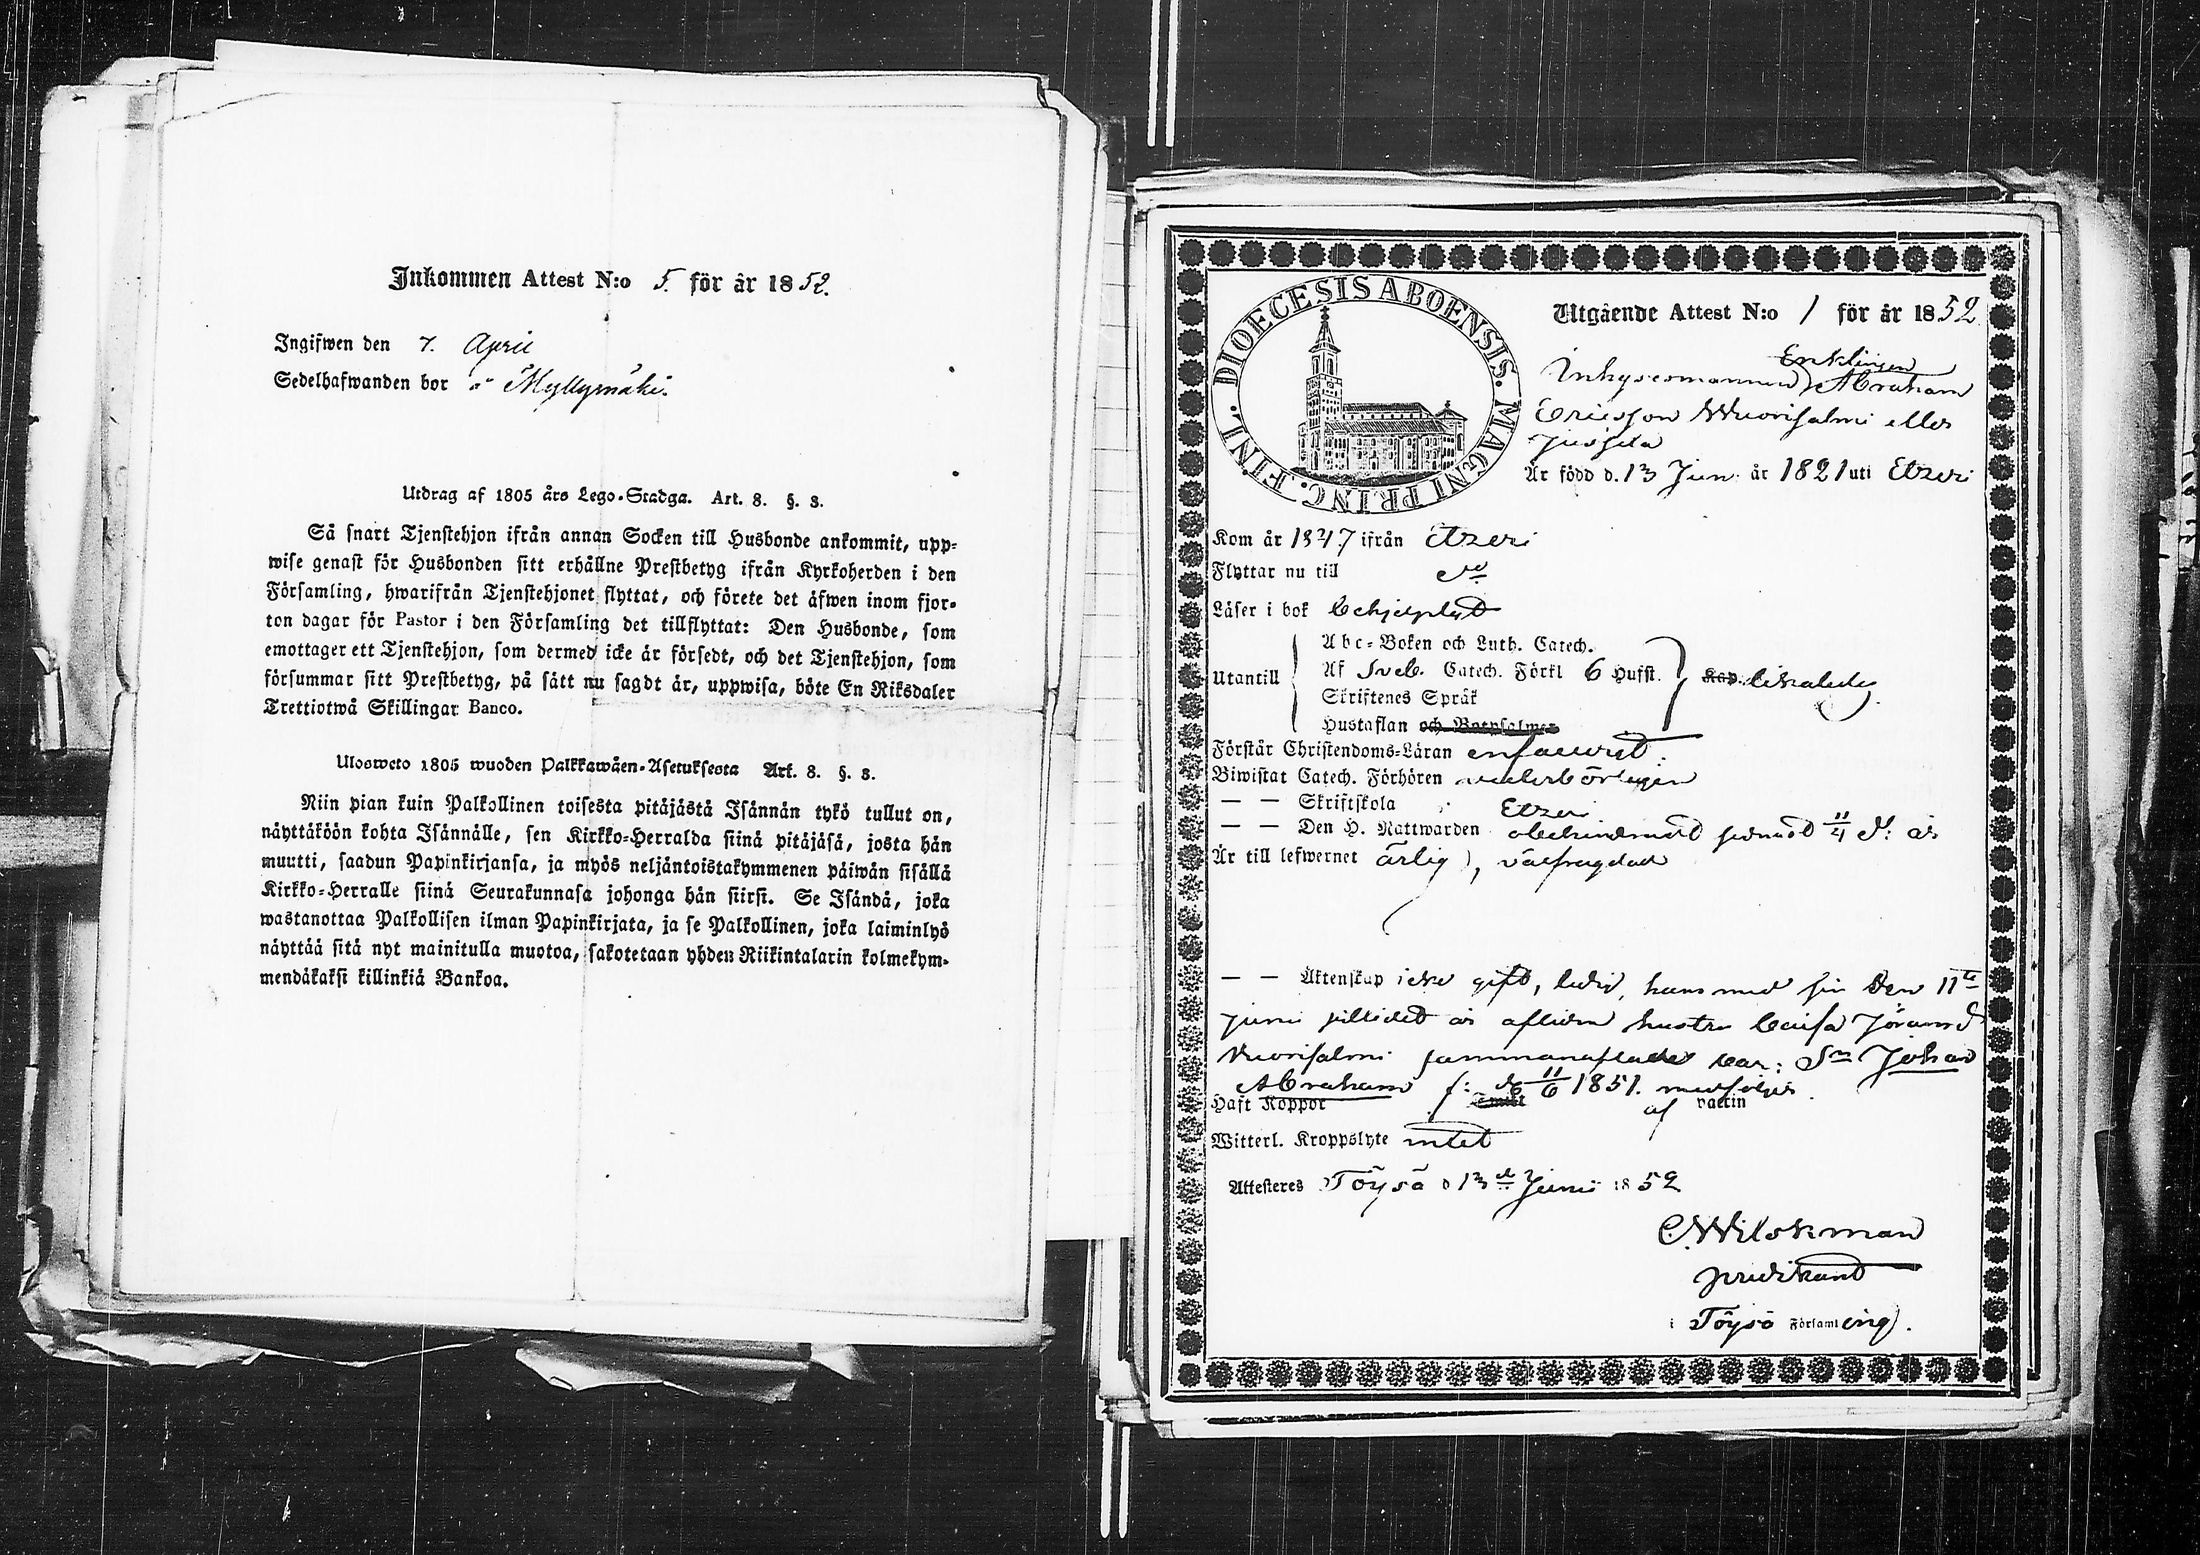 Inkommen Attest N:o 5. för år 1852.
Ingifwen den 7. April
Sedelhafwanden bor å Myllymäki.
Utdrag af 1805 års Lego-Stadga. Art. 8. §. 3.
Så snart Tjenstehjon ifrån annan Socken till Husbonde ankommit, upp-
wise genast för Husbonden sitt erhållne Prestbetyg ifrån Kyrkoherden i den
Församling, hwarifrån Tjenstehjonet flyttat, och förete det äfwen inom fjor-
ton dagar för Pastor i den Församling det tillflyttat: Den Husbonde, som
emottager ett Tjenstehjon, som dermed icke är försedt, och det Tjenstehjon, som
försummar sitt Prestbetyg, på sätt nu sagdt är, uppwisa, böte En Riksdaler
Trettiotwå Skillingar Banco.
Ulosweto 1805 wuoden Palkkawäen-Asetuksesta Art. 8. §. 3.
Niin pian kuin Palkollinen toisesta pitäjästä Isännän tykö tullut on,
näyttäköön kohta Isännälle, sen Kirkko-Herralda siinä pitäjäsä, josta hän
muutti, saadun Papinkirjansa, ja myös neljäntoistakymmenen päiwän sisällä
Kirkko-Herralle siinä Seurakunnasa johonga hän siirsi. Se Isändä, joka
wastanottaa Palkollisen ilman Papinkirjata, ja se Palkollinen, joka laiminlyö
näyttää sitä nyt mainitulla muotoa, sakotetaan yhden Riikintalarin kolmekym-
mendäkaksi killinkiä Bankoa.
DIOECESIS ABOENSIS. MAGNI PRINC. FINL.
Utgående Attest N:o 1 för år 1852
Enklingen
Inhysesmannen Abraham
Ericsson Wuorisalmi eller
Jussila
Är född d. 13 Jun år 1821 uti Etzeri
Kom år 1847 ifrån Etzeri
Flyttar nu till do
Läser i bok behjelpligt
Abc-Boken och Luth. Catech.
Utantill Af Sveb. Catech. Förkl 6 Hufst. Kap. likaledes
Skriftenes Språk
Hustaflan och Botpsalmer
Förstår Christendoms-Läran enfaldigt
Biwistat Catech. Förhören vederbörligen
— — Skriftskola i Etzeri
— — Den H. Nattwarden obehindrad senast 11/4 d: år
Är till lefwernet ärlig, välfrägdad
— — Äktenskap icke gift, ledig, hans med sin den 11te
Juni sistlidet år aflidna hustru Caisa Jöransd
Wuorisalmi sammanaflade barn: Sn Johan
Abraham f: d 11/6 1851. medföljer
Haft Koppor af vaccin
Witterl. Kroppslyte intet
Attesteres Töysä d 13de Juni 1852
C. Wilskman
predikant
i Töysä Församling.